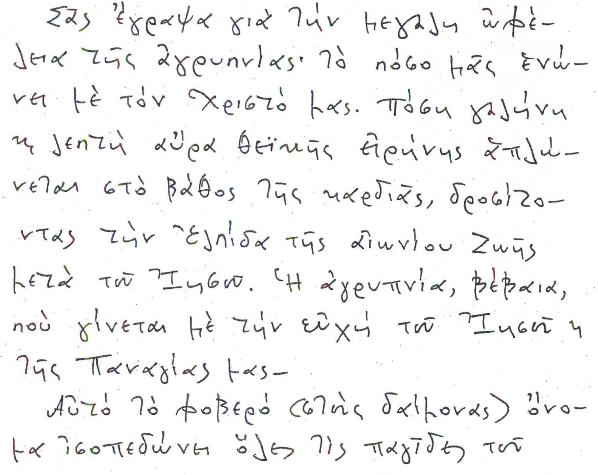 Σᾶς ἔγραψα γιὰ τὴν μεγάλη ὠφέ-
λεια τῆς ἀγρυπνίας· τὸ πόσο μᾶς ἑνώ-
νει μὲ τόν Χριστό μας. Πόση γαλήνη
κ λεπτὴ αὔρα θεϊκῆς εἰρήνης ἁπλώ-
νεται στὸ βάθος τῆς καρδιᾶς, δροσίζο-
ντας τὴν ἐλπίδα τῆς αἰωνίου Ζωῆς
μετὰ τοῦ Ἰησοῦ. Ἡ ἀγρυπνία, βέβαια,
ποὺ γίνεται μὲ τὴν εὐχή τοῦ Ἰησοῦ κ
τῆς Παναγίας μας–
Αὐτό τὸ φοβερό (στοὺς δαίμονας) ὄνο-
μα ἰσοπεδώνει ὅλες τὶς παγίδες τοῦ